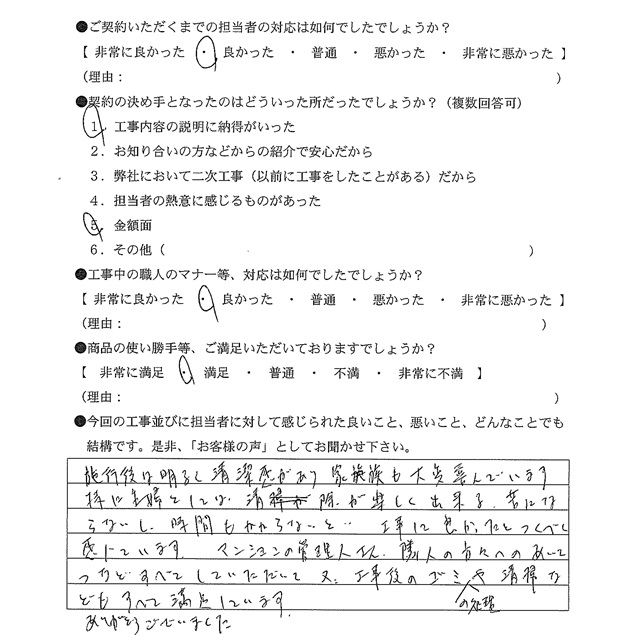 ●ご契約いただくまでの担当者の対応は如何でしたでしょうか？
【 非常に良かった ・ 良かった ・ 普通 ・ 悪かった ・ 非常に悪かった 】
（理由： ）
●契約の決め手となったのはどういった所だったでしょうか？（複数回答可）
1．工事内容の説明に納得がいった
2．お知り合いの方などからの紹介で安心だから
3．弊社において二次工事（以前に工事をしたことがある）だから
4．担当者の熱意に感じるものがあった
5．金額面
6．その他（ ）
●工事中の職人のマナー等、対応は如何でしたでしょうか？
【 非常に良かった ・ 良かった ・ 普通 ・ 悪かった ・ 非常に悪かった 】
（理由： ）
●商品の使い勝手等、ご満足いただいておりますでしょうか？
【 非常に満足 ・ 満足 ・ 普通 ・ 不満 ・ 非常に不満 】
（理由： ）
●今回の工事並びに担当者に対して感じられた良いこと、悪いこと、どんなことでも
結構です。是非、「お客様の声」としてお聞かせ下さい。
施行後は明るく清潔感があり 家族も大変喜んでいます
特に主婦としては 清掃が 楽しく出来る 苦にな
らないし 時間もかからないと… 工事に良かったとつくづく
感じています マンションの管理人さん 隣人の方々へのあいさ
つなどすべてしていただいて 又、工事後のゴミの処理や 清掃な
どもすべて満足しています
ありがとうございました